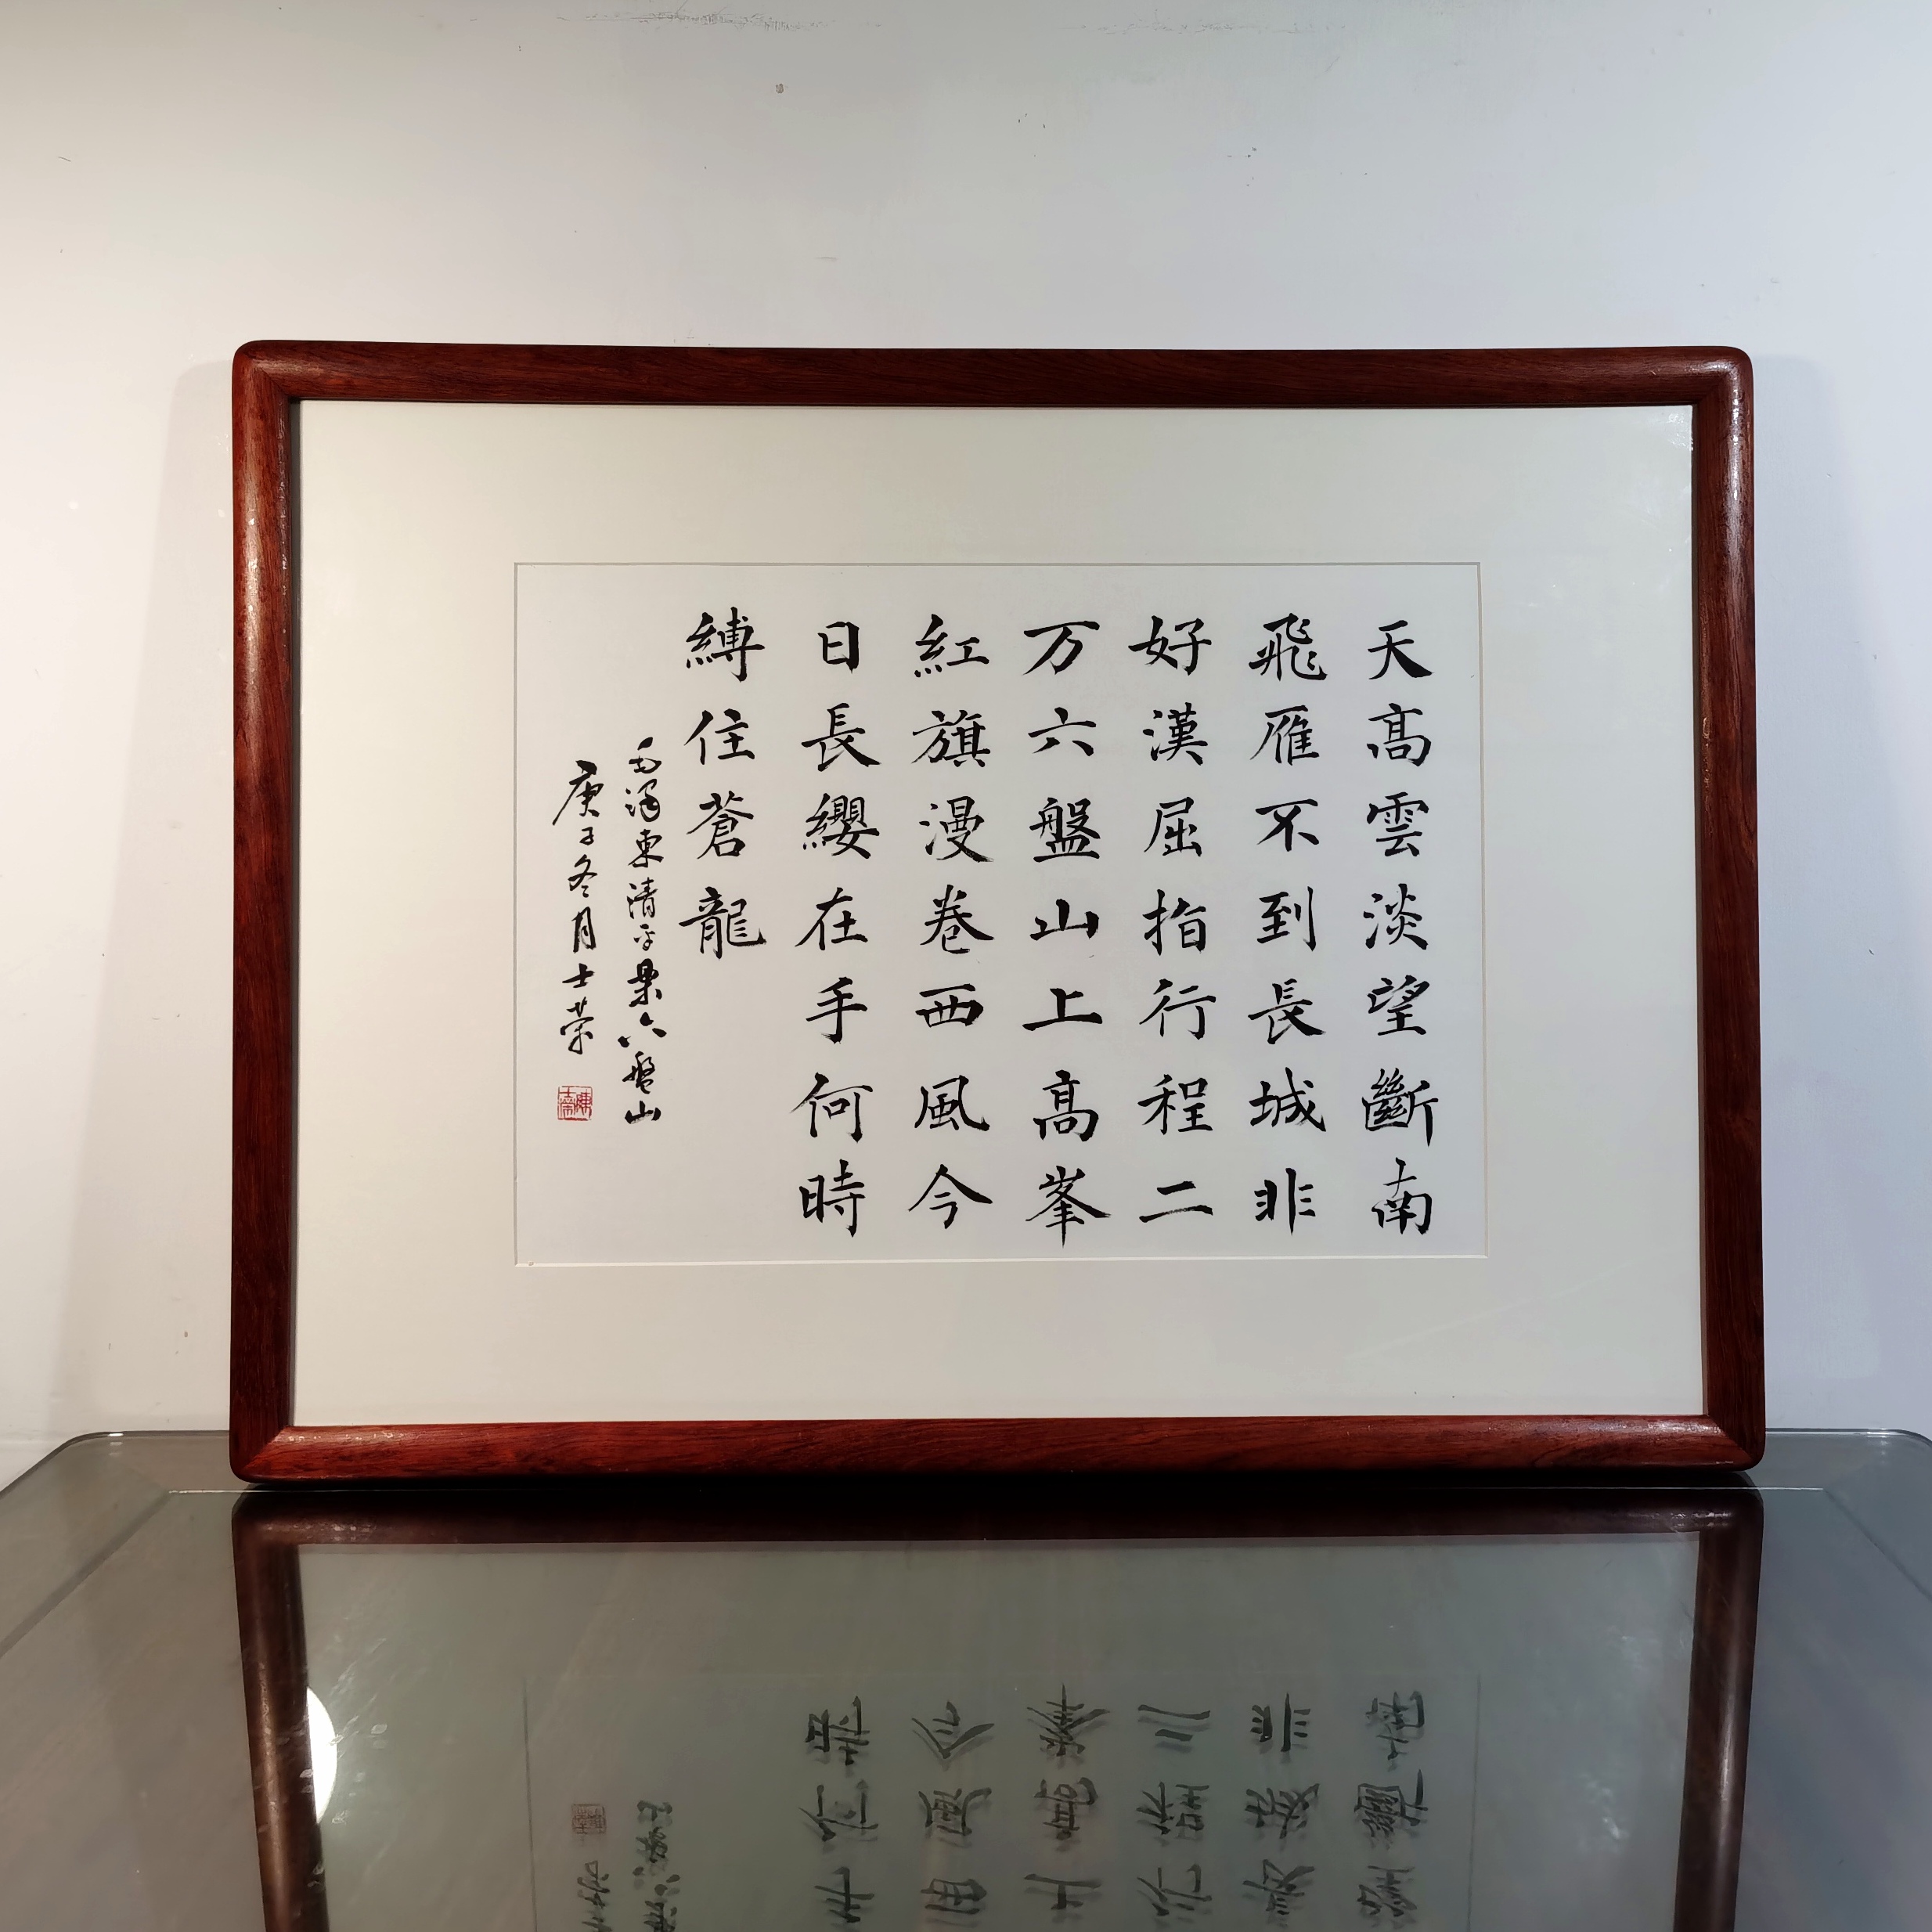 天高雲淡望斷南
飛雁不到長城非
好漢屈指行程二
万六盤山上高峯
紅旗漫卷西風今
日長纓在手何時
縛住蒼龍
毛澤東清平樂六盤山
庚子冬月士荣